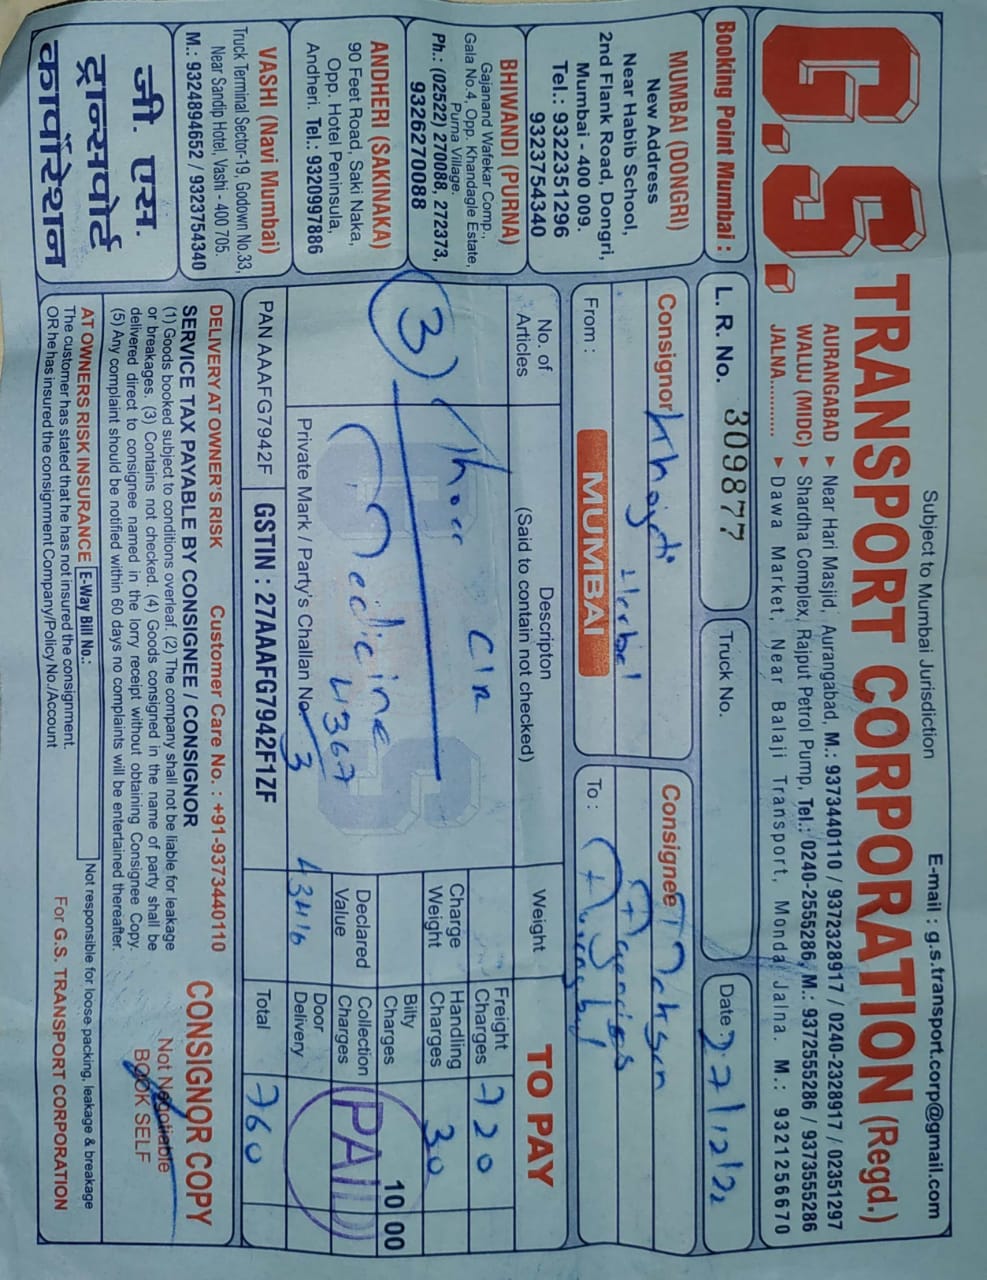 Subject to Mumbai Jurisdiction
E-mail : g.s.transport.corp@gmail.com
G.S. TRANSPORT CORPORATION (Regd.)
AURANGABAD ▸ Near Hari Masjid, Aurangabad, M.: 9373440110 / 9372328917 / 0240-2328917 / 02351297
WALUJ (MIDC) ▸ Shardha Complex, Rajput Petrol Pump, Tel.: 0240-2555286, M.: 9372555286 / 9373555286
JALNA........... ▸ Dawa Market, Near Balaji Transport, Monda Jalna. M.: 9321256670
Booking Point Mumbai :
MUMBAI (DONGRI)
New Address
Near Habib School,
2nd Flank Road, Dongri,
Mumbai - 400 009.
Tel.: 9322351296
9323754340
BHIWANDI (PURNA)
Gajanand Wafekar Comp.,
Gala No.4, Opp. Khandagle Estate,
Purna Village.
Ph.: (02522) 270088, 272373,
9326270088
ANDHERI (SAKINAKA)
90 Feet Road, Saki Naka,
Opp. Hotel Peninsula,
Andheri. Tel.: 9320997886
VASHI (Navi Mumbai)
Truck Terminal Sector-19, Godown No.33,
Near Sandip Hotel, Vashi - 400 705.
M.: 9324894652 / 9323754340
जी. एस.
ट्रान्सपोर्ट
कार्पोरेशन
L. R. No. 309877
Truck No.
Date 27/12/22
Consignor Khojati Herbal
From : MUMBAI
Consignee Mohsen
Agencies
To :
No. of Articles
Descripton
(Said to contain not checked)
Weight
TO PAY
3
C/R
Medicine
4367
Private Mark / Party's Challan No. 3
Charge Weight
Declared Value
43416
Freight Charges 720
Handling Charges 30
Bilty Charges 10 00
Collection Charges
Door Delivery
PAID
Total 760
PAN AAAFG7942F
GSTIN : 27AAAFG7942F1ZF
DELIVERY AT OWNER'S RISK Customer Care No. : +91-9373440110
SERVICE TAX PAYABLE BY CONSIGNEE / CONSIGNOR
(1) Goods booked subject to conditions overleaf. (2) The company shall not be liable for leakage
or breakages. (3) Contains not checked. (4) Goods consigned in the name of party shall be
delivered direct to consignee named in the lorry receipt without obtaining Consignee Copy.
(5) Any complaint should be notified within 60 days no complaints will be entertained thereafter.
CONSIGNOR COPY
Not Negotiable
BOOK SELF
AT OWNERS RISK INSURANCE E-Way Bill No.:
The customer has stated that he has not insured the consignment.
OR he has insured the consignment Company/Policy No./Account
Not responsible for loose packing, leakage & breakage
For G.S. TRANSPORT CORPORATION